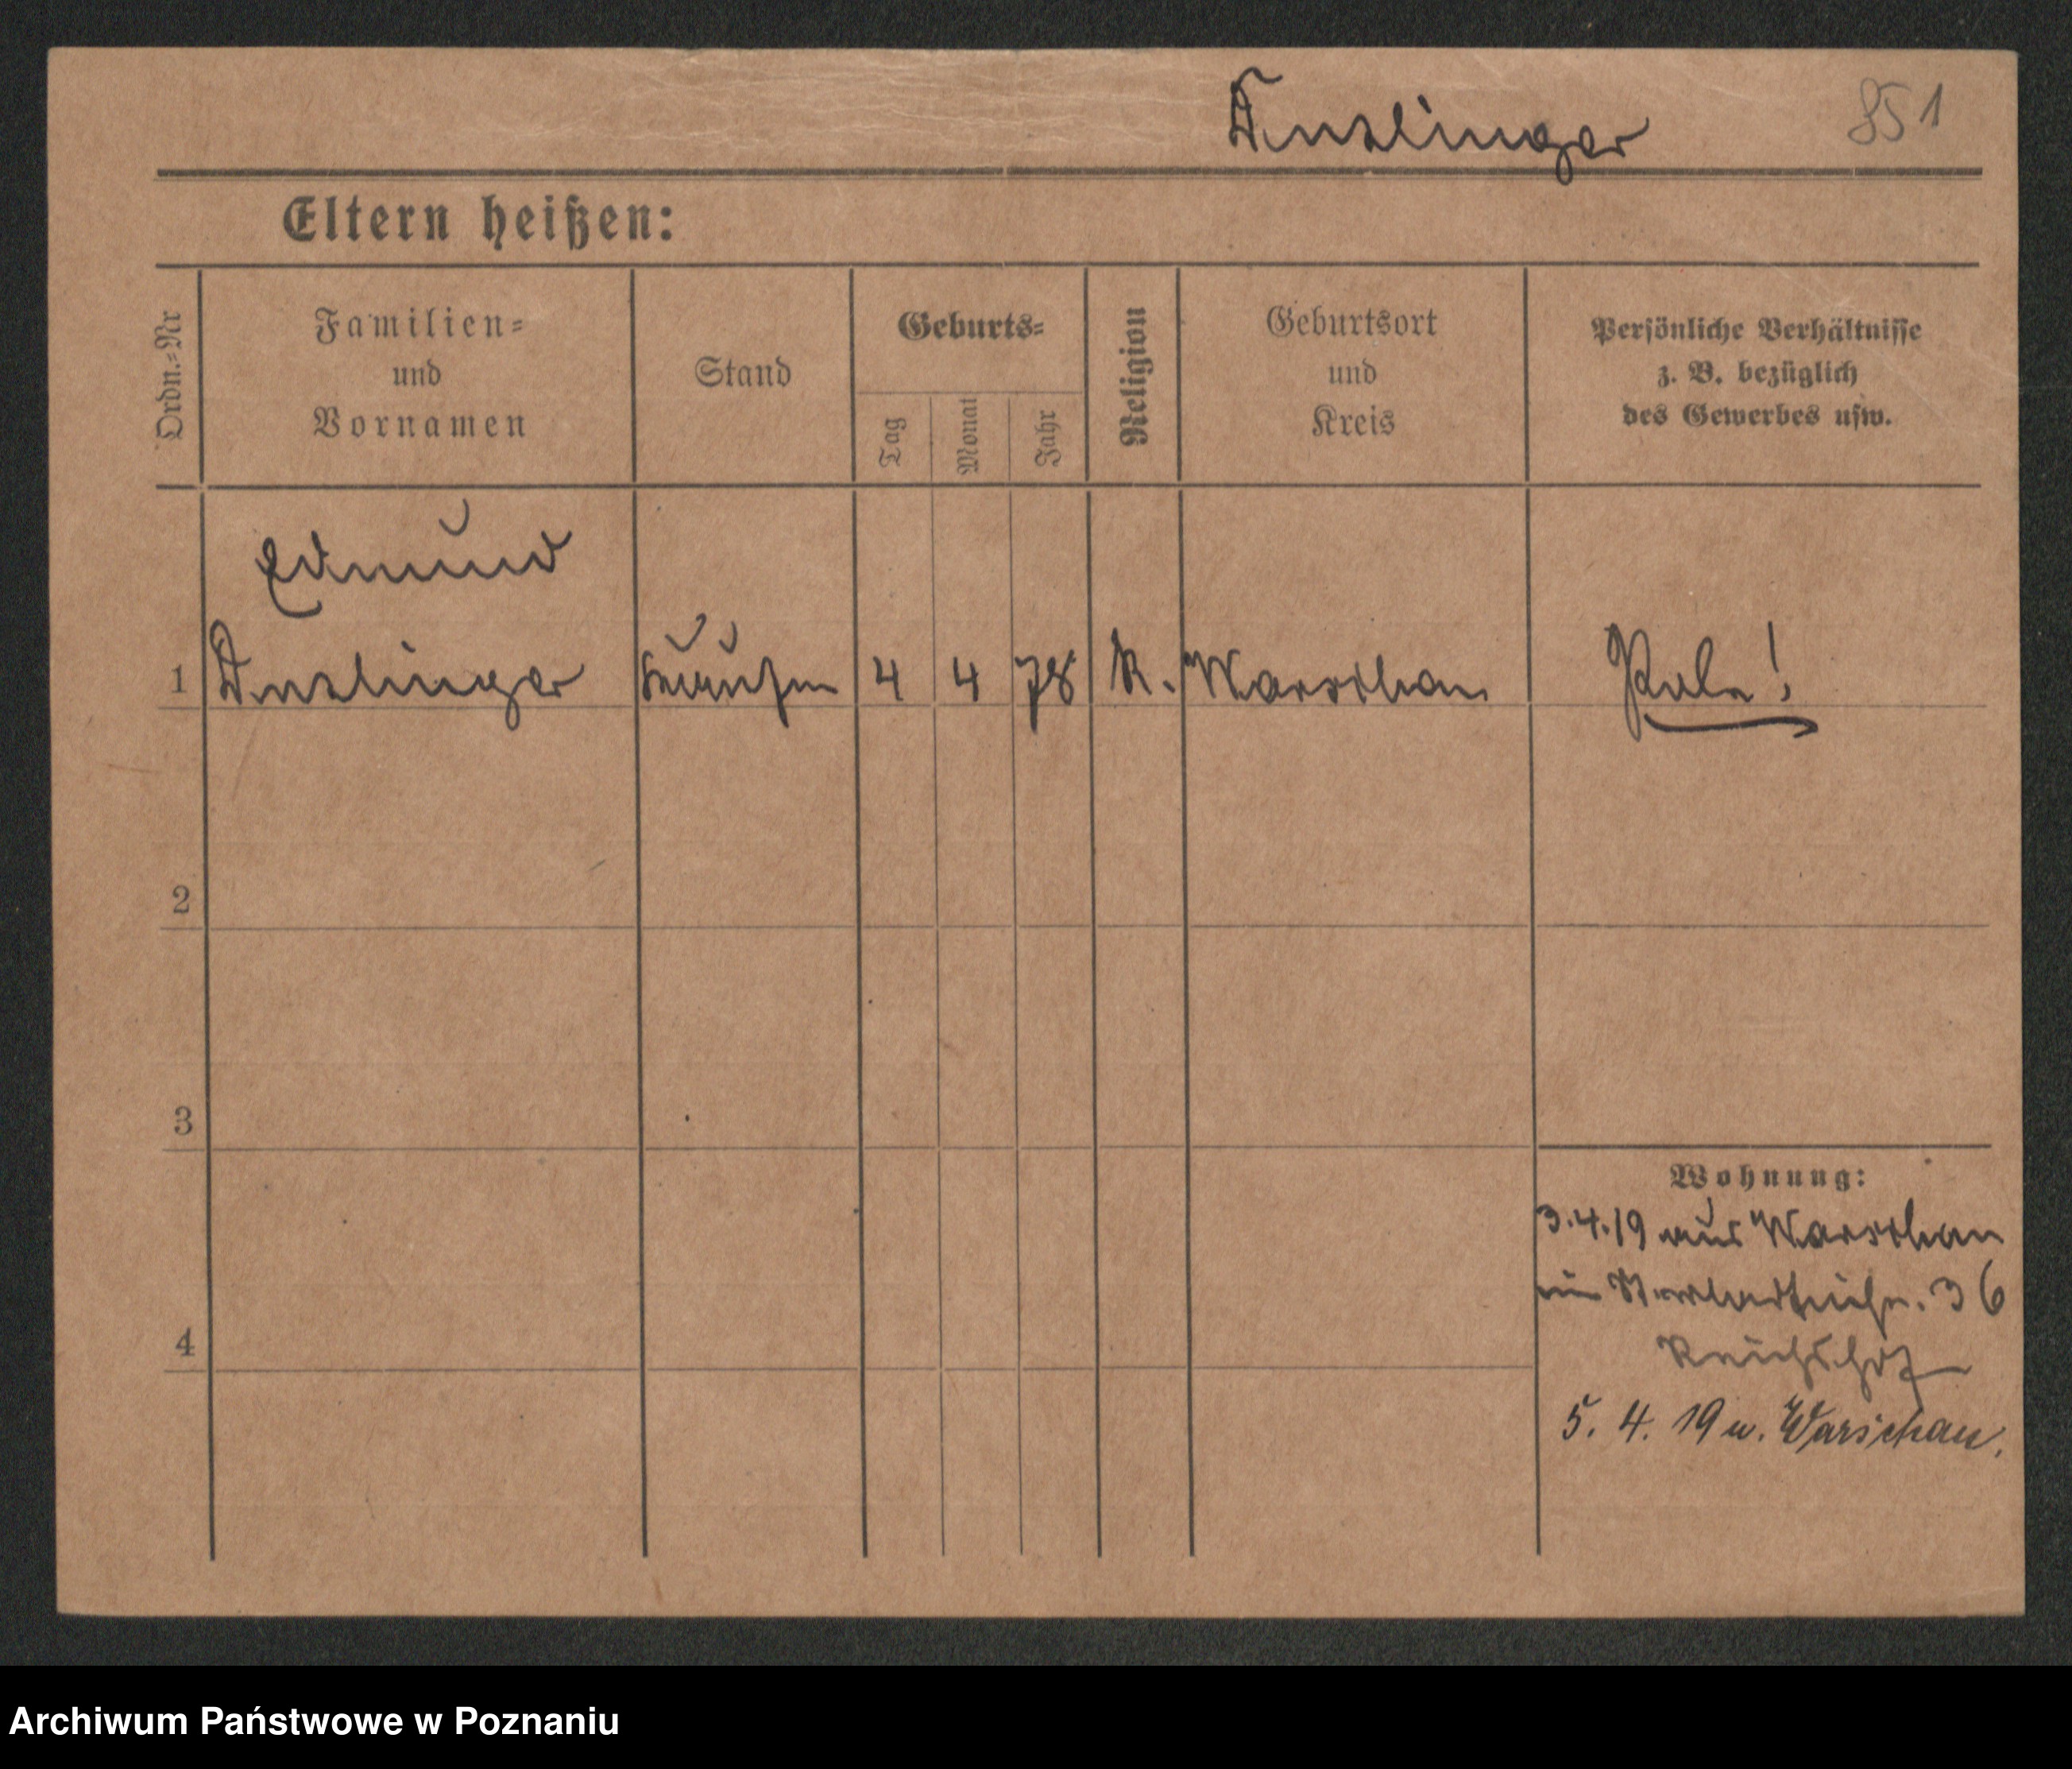 851
Eltern heißen:
Ordn.=Nr
Familien=
und
Vornamen
Stand
Geburts=
Tag
Monat
Jahr
Religion
Geburtsort
und
Kreis
Persönliche Verhältnisse
z. B. bezüglich
des Gewerbes usw.
Edmund
1 4 4 78 K. Warschau Pole!
2
3
4
Wohnung:
3.4.19 aus Warschau
36
Reichshof
5. 4. 19 n. Warschau.
Archiwum Państwowe w Poznaniu